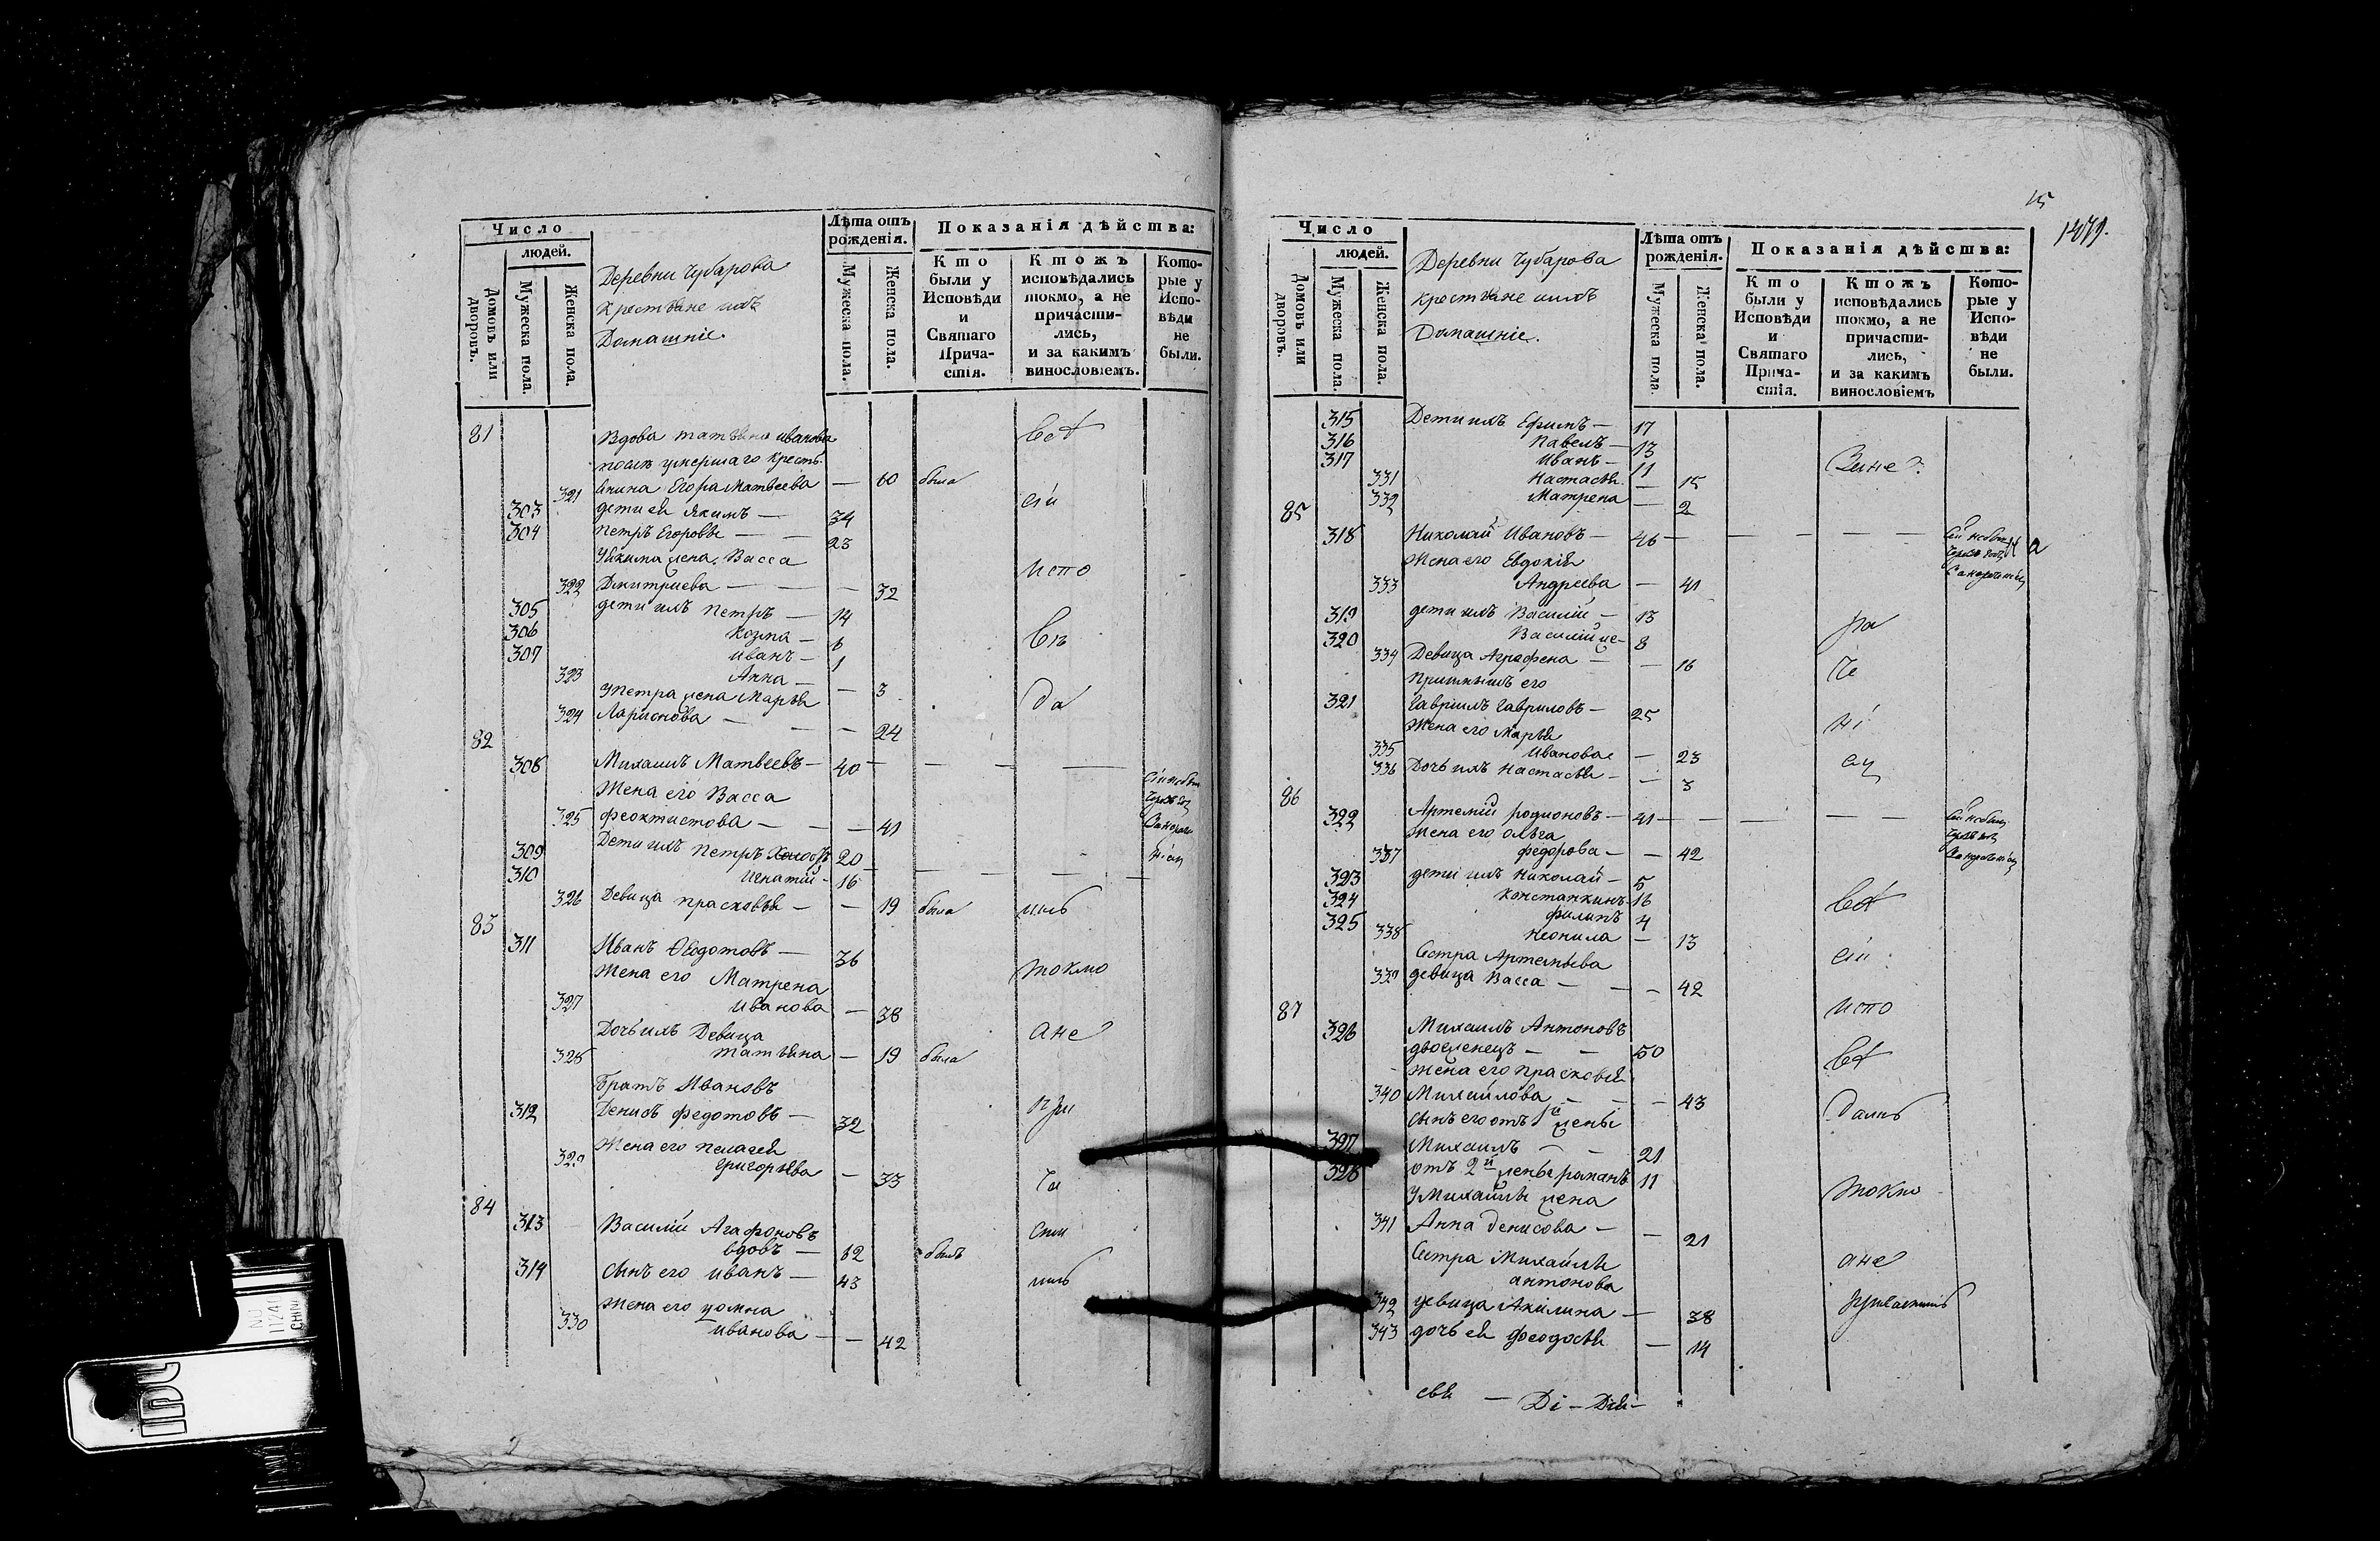 Число
людей.
Домовъ или дворовъ.
Мужеска пола.
Женска пола.
Деревни Чубарова
крестьяне ихъ
Домашніе.
Лѣта отъ рожденія.
Мужеска пола.
Женска пола.
Показанія дѣйства:
Кто были у Исповѣди и Святаго Причастія.
Ктожъ исповѣдались токмо, а не причастились, и за какимъ винословіемъ.
Которые у Исповѣди не были.
81 Вдова татьяна иванова
после умершаго крестья-
321 янина Егора Матвеева — 60 была
303 дети ея Якимъ — 34 сіи
304 Петръ Егоровы — 23
У Якима жена Васса
322 Дмитриева — 32 испо
305 дети ихъ Петръ — 14
306 Козма — 6 вѣ
307 Иванъ — 1
323 Анна — 3
У Петра жена Марья да
324 Ларионова — 24
82
308 Михаилъ Матвеевъ — 40
Жена его Васса
325 феоктистова — 41
309 Дети ихъ Петръ 20
310 Игнатій — 16
326 Девица прасковья — 19 была
83
311 Иванъ Ѳеодотовъ — 36
Жена его Матрена токмо
327 Иванова — 38
Дочь ихъ Девица ане
328 татьяна — 19 была
братъ Ивановъ
312 Денисъ федотовъ — 32 при
Жена его пелагея
329 григорьева — 33 ча
84
313 Василій Агафоновъ сти
вдовъ — 62 былъ
314 сынъ его иванъ — 43
Жена его домна
330 иванова — 42
15
1479.
Число
людей.
Домовъ или дворовъ.
Мужеска пола.
Женска пола.
Деревни Чубарова
крестьяне ихъ
Домашніе.
Лѣта отъ рожденія.
Мужеска пола.
Женска пола.
Показанія дѣйства:
Кто были у Исповѣди и Святаго Причастія.
Ктожъ исповѣдались токмо, а не причастились, и за какимъ винословіемъ
Которые у Исповѣди не были.
315 Дети ихъ Ефимъ — 17
316 Павелъ — 13
317 Иванъ — 11
331 Настасья — 15
332 Матрена — 2
85
318 Николай Ивановъ — 46
Жена его Евдокія
333 Андреева — 41
319 дети ихъ Василій — 13
320 Василій же — 8 ра
334 Девица Аграфена — 16
Приимышъ его че
321 Гавріилъ Гавриловъ — 25
Жена его Марья ні
335 Иванова — 23
336 Дочь ихъ Настасья — 3
86
322 Артемій родионовъ — 41
Жена его ольга
337 федорова — 42
323 дети ихъ Николай — 5
324 Константинъ — 16
325 филипъ 4
338 Неонила — 13
Сестра Артемьева сіи
339 девица Васса — 42
87 испо
326 Михаилъ Антоновъ
двоеженецъ — 50
жена его прасковья
340 Михайлова — 43
сынъ его отъ 1й жены
327 Михаилъ — 21
328 отъ 2й жены романъ 11
У Михайлы жена токмо
341 Анна денисова — 21
Сестра Михайлы ане
антонова
342 девица Акилина — 38
343 дочь ея феодосья — 14
свя — Di —